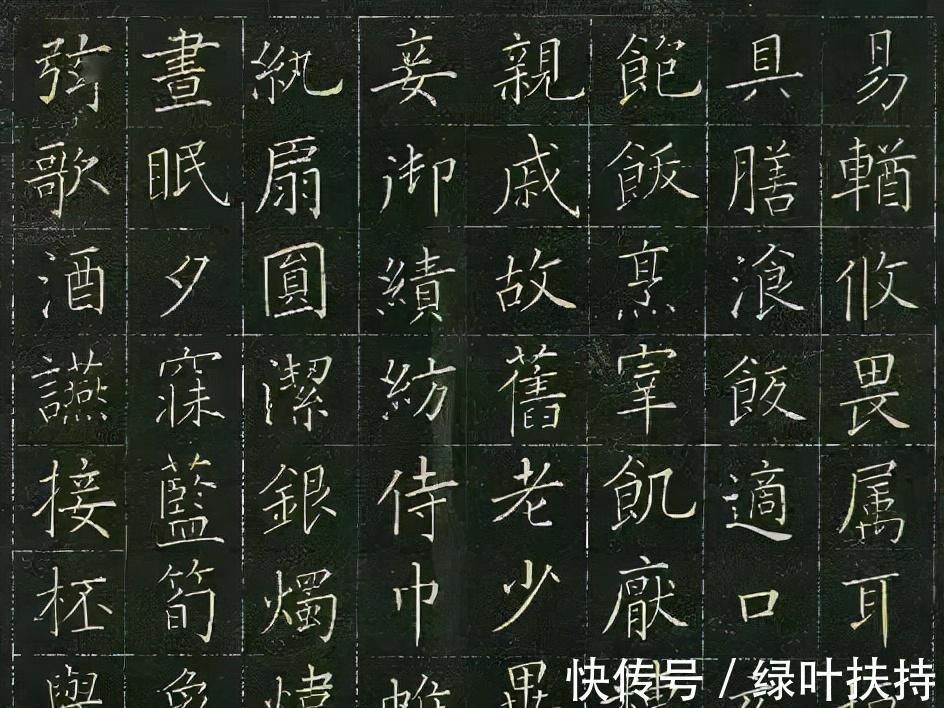 易輶攸畏属耳
具膳飡飯適口
飽飫烹宰飢厭
親戚故舊老少異
妾御績紡侍巾帷
紈扇圓潔銀燭煒
晝眠夕寐藍筍象
弦歌酒讌接杯舉
快传号 / 绿叶扶持